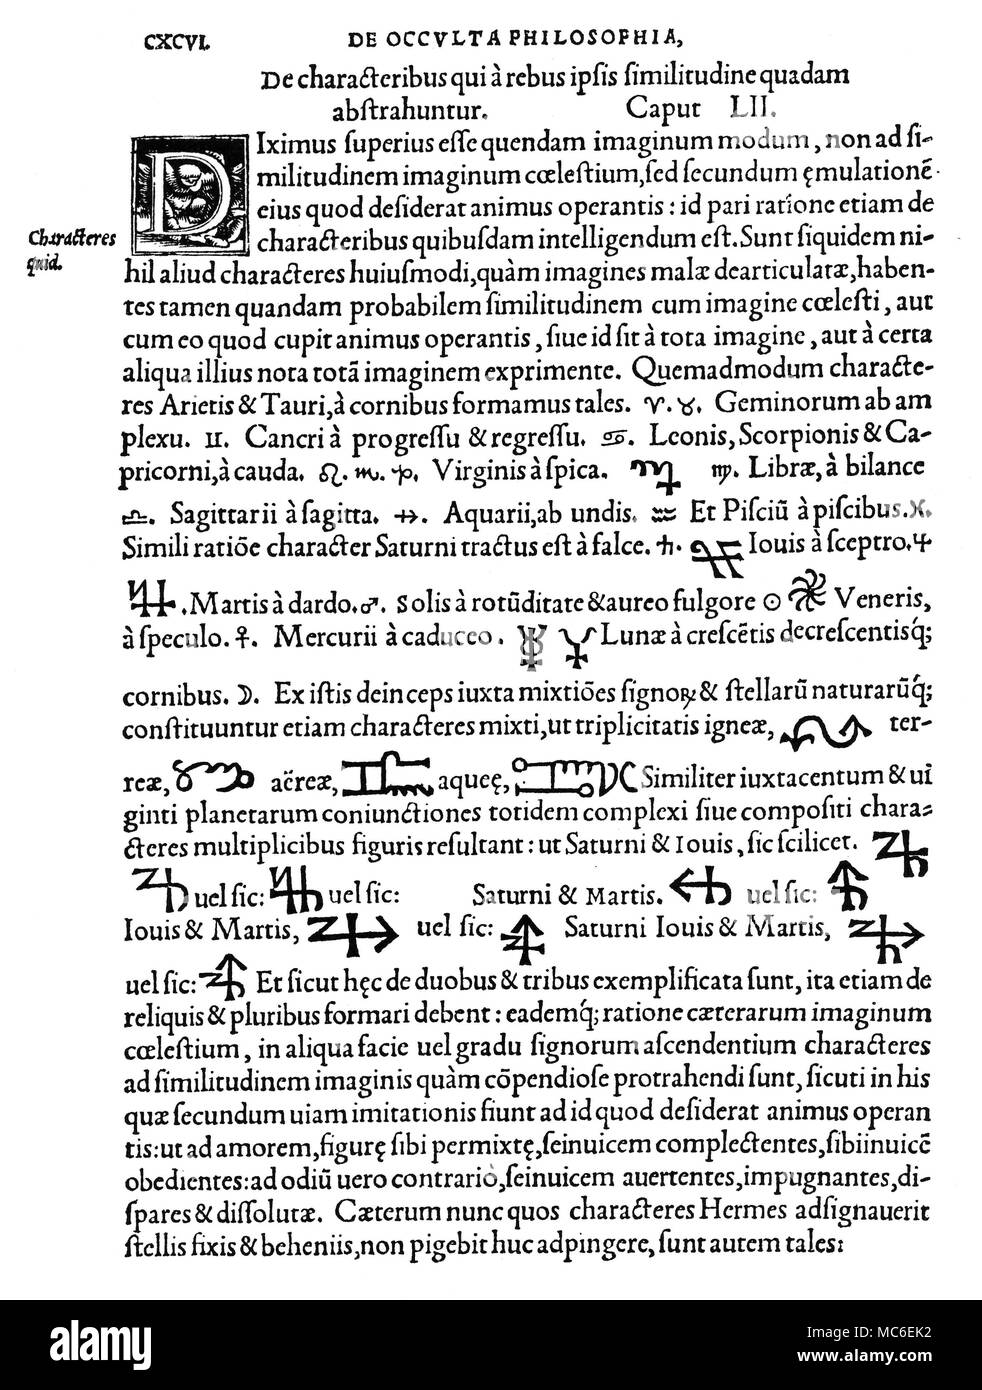 CXCVI. DE OCCVLTA PHILOSOPHIA,
De characteribus qui à rebus ipsis similitudine quadam
abstrahuntur. Caput LII.
DIximus superius esse quendam imaginum modum, non ad si-
militudinem imaginum cœlestium, sed secundum ęmulationē
eius quod desiderat animus operantis: id pari ratione etiam de
characteribus quibusdam intelligendum est. Sunt siquidem ni-
Characteres
quid.
hil aliud characteres huiusmodi, quàm imagines malæ dearticulatæ, haben-
tes tamen quandam probabilem similitudinem cum imagine cœlesti, aut
cum eo quod cupit animus operantis, siue id sit à tota imagine, aut à certa
aliqua illius nota totā imaginem exprimente. Quemadmodum characte-
res Arietis & Tauri, à cornibus formamus tales. ♈. ♉. Geminorum ab am
plexu. ♊. Cancri à progressu & regressu. ♋. Leonis, Scorpionis & Ca-
pricorni, à cauda. ♌. ♏. ♑. Virginis à spica. ♍. Libræ, à bilance
♎. Sagittarii à sagitta. ♐. Aquarii, ab undis. ♒ Et Pisciū à piscibus. ♓.
Simili ratiōe character Saturni tractus est à falce. ♄. Iouis à sceptro. ♃
. Martis à dardo. ♂. Solis à rotūditate & aureo fulgore ☉ Veneris,
à speculo. ♀. Mercurii à caduceo. Lunæ à crescētis decrescentisq;
cornibus. ☽. Ex istis deinceps iuxta mixtiōes signoꝝ & stellarū naturarūq;
constituuntur etiam characteres mixti, ut triplicitatis igneæ, ter-
reæ, aëreæ, aqueę, Similiter iuxta centum & ui
ginti planetarum coniunctiones totidem complexi siue compositi chara-
cteres multiplicibus figuris resultant: ut Saturni & Iouis, sic scilicet.
uel sic: uel sic: Saturni & Martis. uel sic:
Iouis & Martis, uel sic: Saturni Iouis & Martis,
uel sic: Et sicut hęc de duobus & tribus exemplificata sunt, ita etiam de
reliquis & pluribus formari debent: eademq; ratione cæterarum imaginum
cœlestium, in aliqua facie uel gradu signorum ascendentium characteres
ad similitudinem imaginis quàm cōpendiose protrahendi sunt, sicuti in his
quæ secundum uiam imitationis fiunt ad id quod desiderat animus operan
tis: ut ad amorem, figurę sibi permixtę, seinuicem complectentes, sibiinuicē
obedientes: ad odiū uero contrario, seinuicem auertentes, impugnantes, di-
spares & dissolutæ. Cæterum nunc quos characteres Hermes adsignauerit
stellis fixis & beheniis, non pigebit huc adpingere, sunt autem tales:
alamy
Image ID: MC6EK2
www.alamy.com